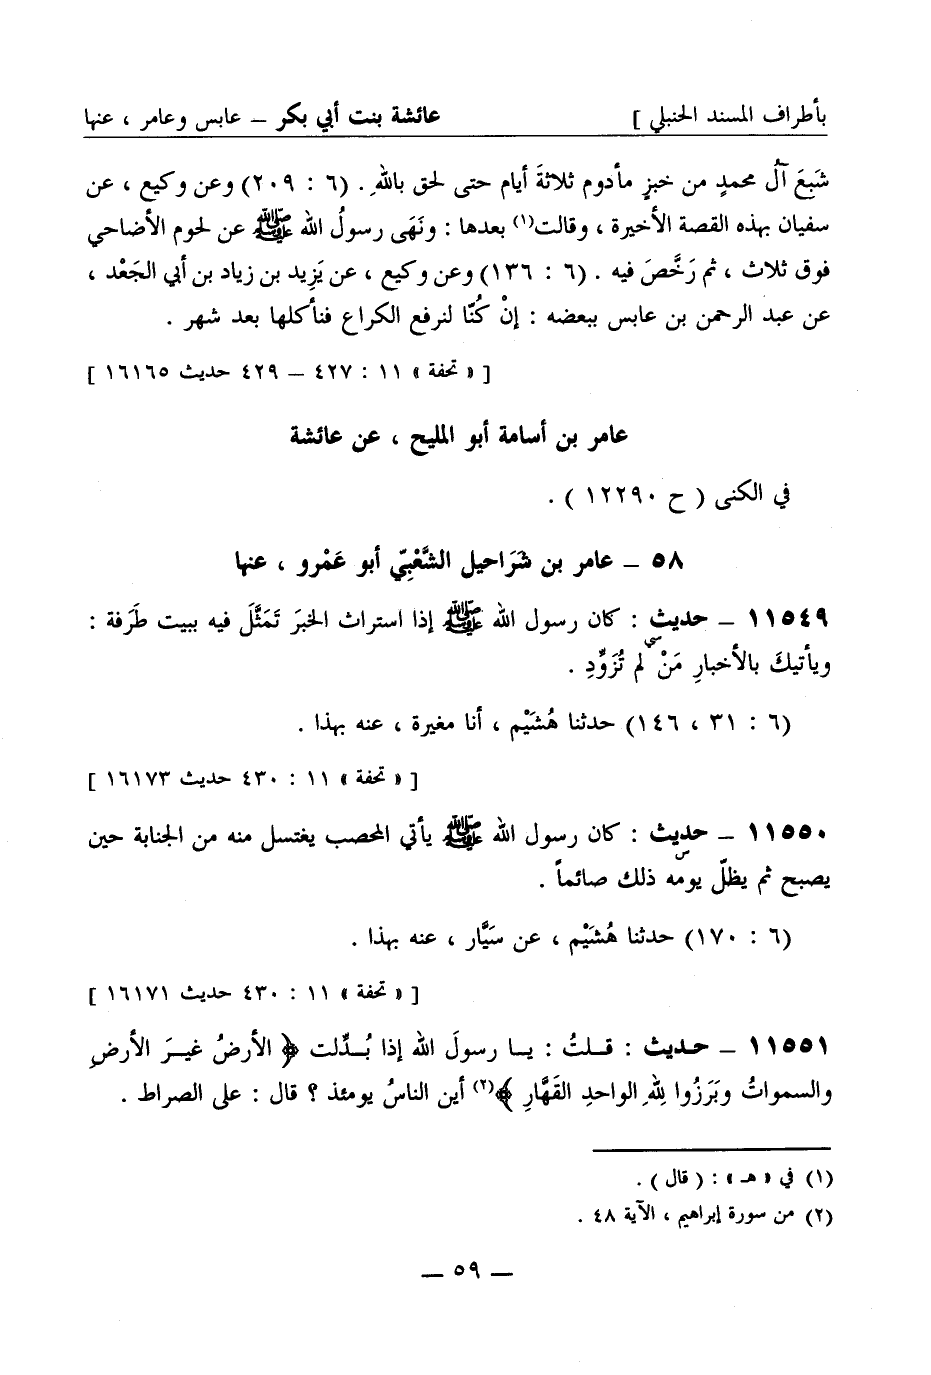 بأطراف المسند الحنبلي ] عائشة بنت أبي بكر – عابس وعامر ، عنها
شَبِعَ آلُ محمدٍ من خبزٍ مأدوم ثلاثةَ أيام حتى لحق باللهِ . (٦ : ٢٠٩) وعن وكيع ، عن
سفيان بهذه القصة الأخيرة ، وقالت(١) بعدها : ونَهَى رسولُ الله ﷺ عن لحوم الأضاحي
فوق ثلاث ، ثم رَخَّصَ فيه . (٦ : ١٣٦) وعن وكيع ، عن يَزِيد بن زياد بن أبي الجَعْد ،
عن عبد الرحمن بن عابس ببعضه : إنْ كُنّا لنرفع الكراع فنأكلها بعد شهر .
[ « تحفة » ١١ : ٤٢٧ – ٤٢٩ حديث ١٦١٦٥ ]
عامر بن أسامة أبو المليح ، عن عائشة
في الكنى ( ح ١٢٢٩٠ ) .
٥٨ – عامر بن شَرَاحيل الشَّعْبِيّ أبو عَمْرو ، عنها
١١٥٤٩ – حديث : كان رسول الله ﷺ إذا استراث الخبرَ تَمَثَّلَ فيه ببيت طَرَفة :
ويأتيكَ بالأخبارِ مَنْ لم تُزَوِّدِ .
(٦ : ٣١ ، ١٤٦) حدثنا هُشَيْم ، أنا مغيرة ، عنه بهذا .
[ « تحفة » ١١ : ٤٣٠ حديث ١٦١٧٣ ]
١١٥٥٠ – حديث : كان رسول الله ﷺ يأتي المحصب يغتسل منه من الجنابة حين
يصبح ثم يظلّ يومَه ذلك صائماً .
(٦ : ١٧٠) حدثنا هُشَيْم ، عن سَيَّار ، عنه بهذا .
[ « تحفة » ١١ : ٤٣٠ حديث ١٦١٧١ ]
١١٥٥١ – حديث : قلتُ : يا رسولَ الله إذا بُدِّلت ﴿ الأرضُ غيرَ الأرضِ
والسمواتُ وبَرَزُوا لِلّهِ الواحدِ القَهَّارِ ﴾(٢) أين الناسُ يومئذ ؟ قال : على الصراط .
(١) في « هـ » : ( قال ) .
(٢) من سورة إبراهيم ، الآية ٤٨ .
– ٥٩ –